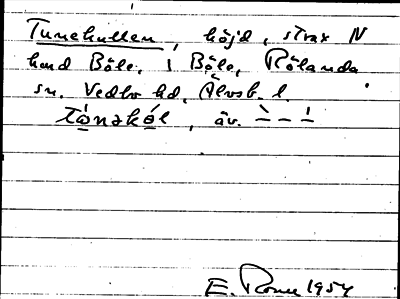 Tunekullen, höjd, strax N
hmd Böle, i Böle, Rölanda
sn. Vedbo hd, Älvsb. l.
tånəkól, äv. – – –
E. Rome 1954